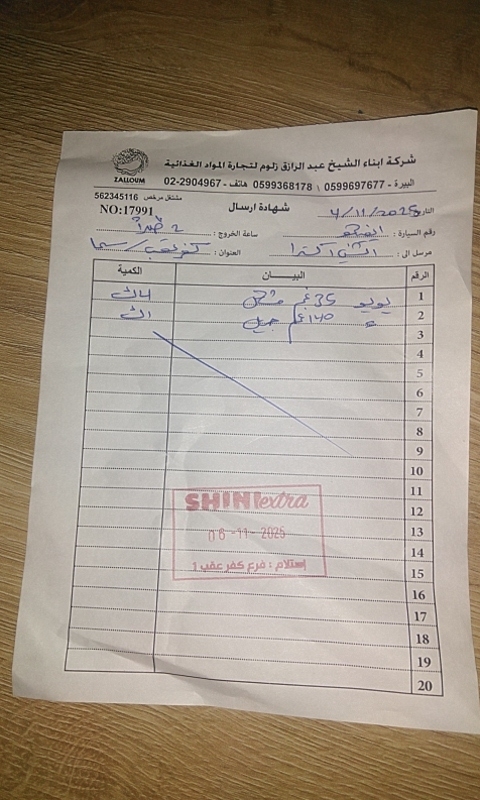 شركة ابناء الشيخ عبد الرازق زلوم لتجارة المواد الغذائية
ZALLOUM
البيرة - 0599697677 \ 0599368178 هاتف - 02-2904967
مشتغل مرخص 562345116
التاريخ 4/11/2025
شهادة ارسال
NO:17991
رقم السيارة :
ساعة الخروج : 2 ظهراً
مرسل الى : الشني اكسترا
العنوان : كفر عقب / سما
الرقم البيـــــان الكمية
1 يويو 35 غم
2 = 140 غم جيل
3
4
5
6
7
8
9
10
11
12
13
14
15
16
17
18
19
20
SHINI extra
06-11-2025
إستلام : فرع كفر عقب 1